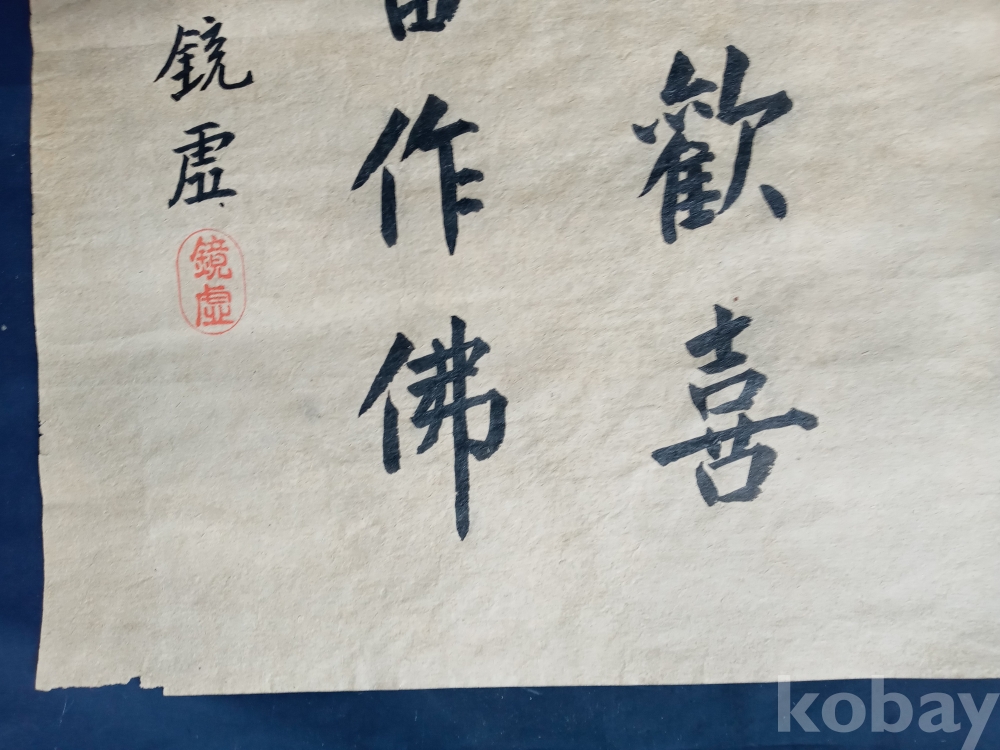 歡喜
當作佛
鏡虛
鏡虛
kobay